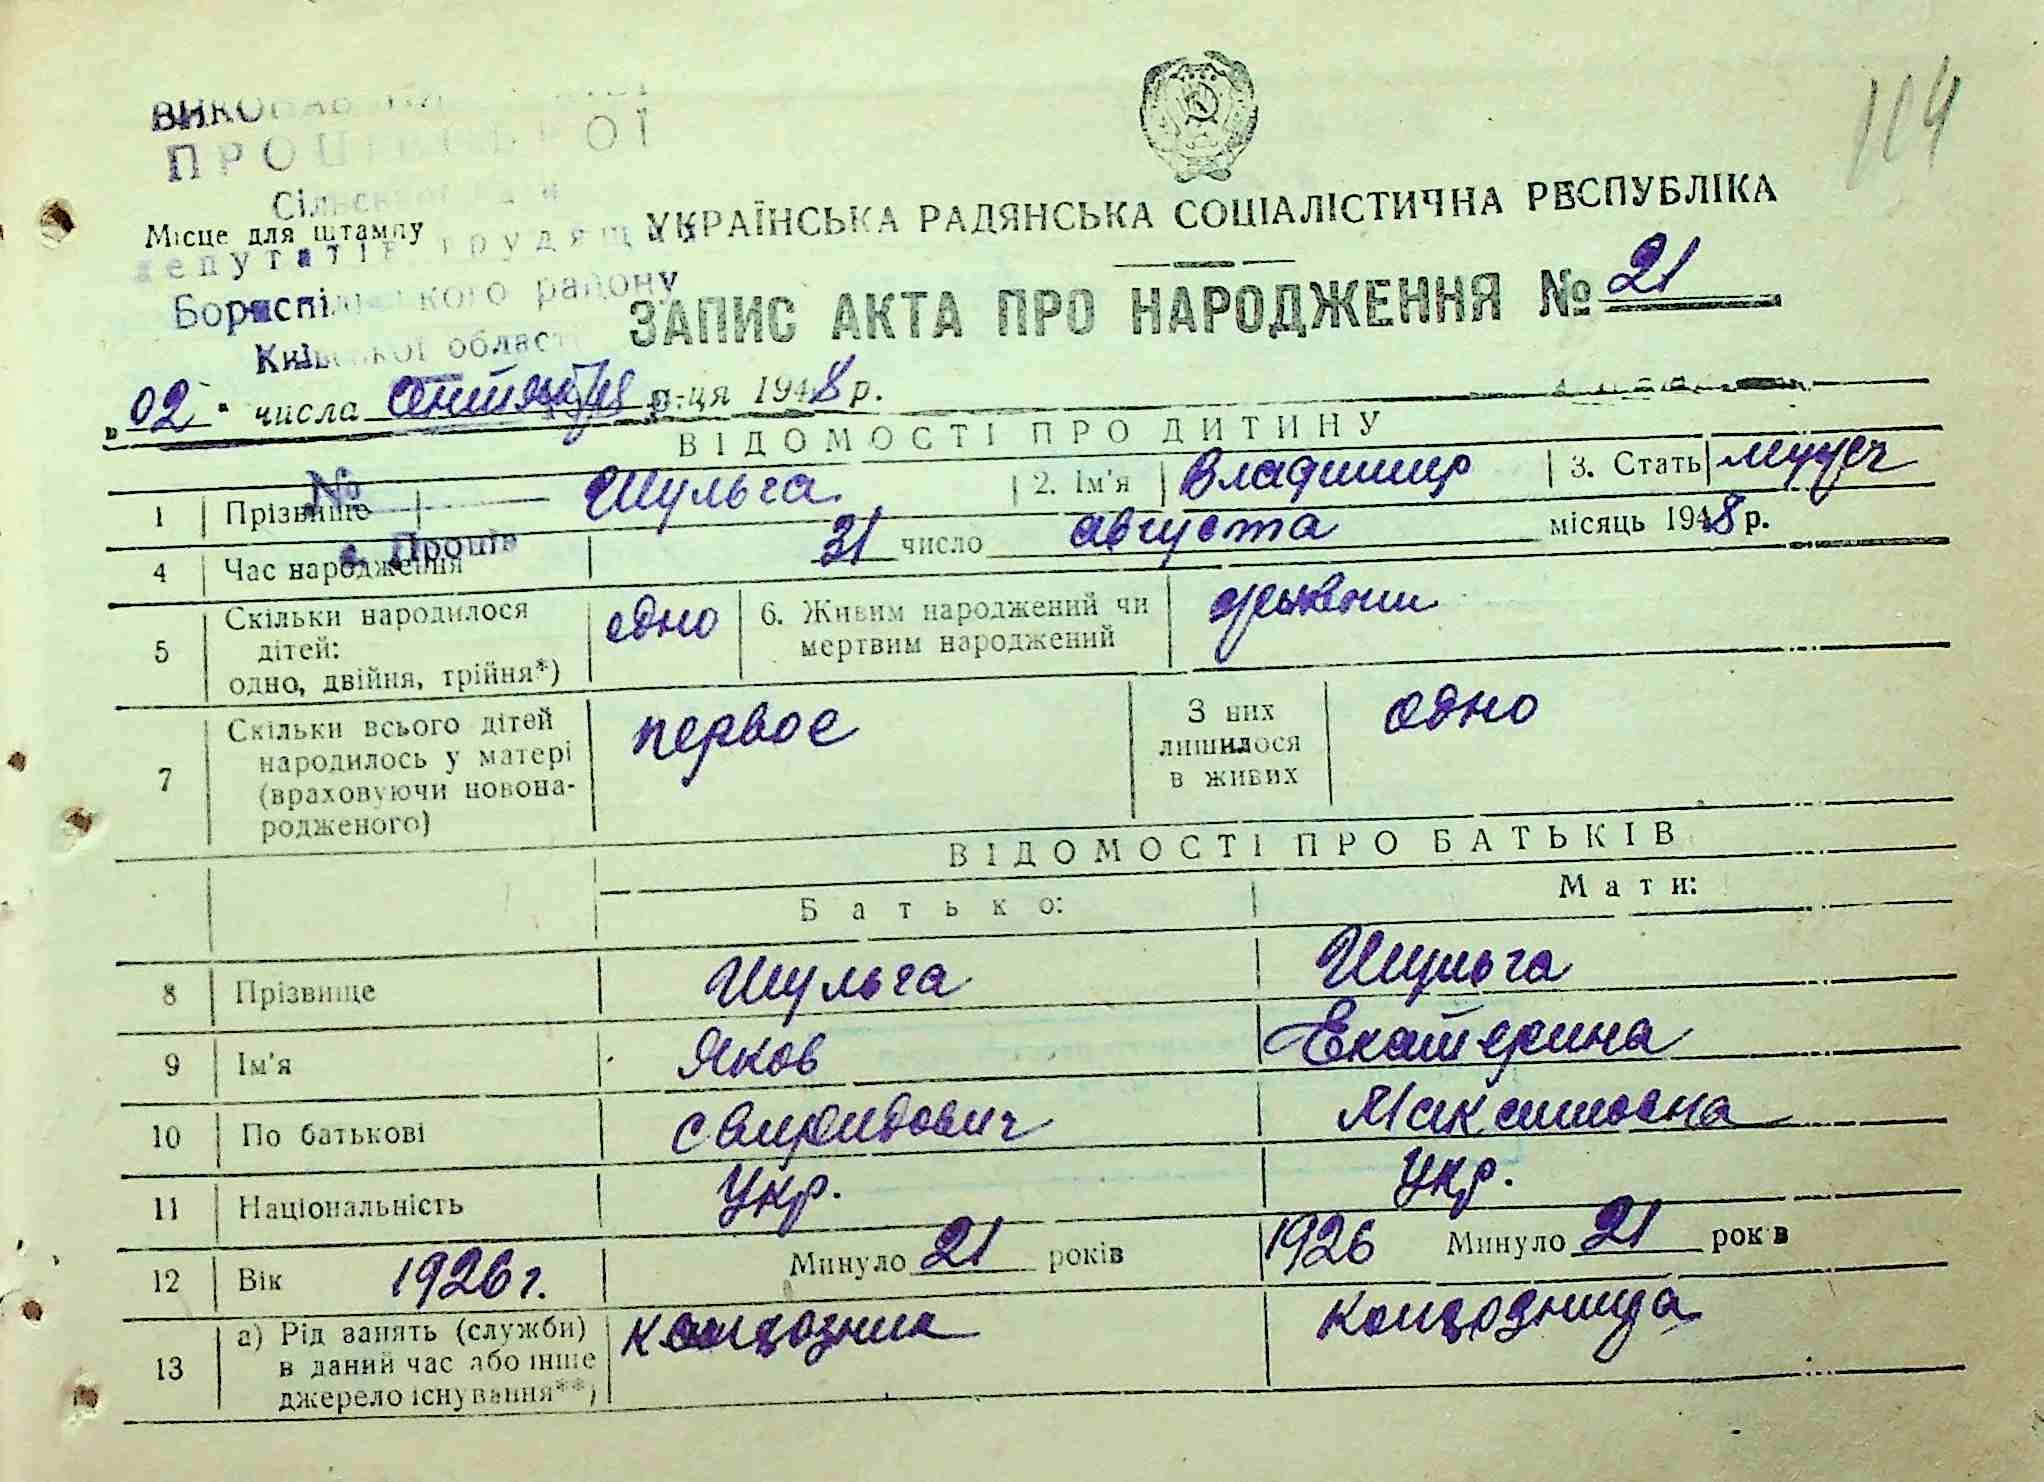 114
ПРОЦІВСЬКОЇ
Сільської Ради
Місце для штампу
депутатів трудящих
Бориспільського району
Київської області
УКРАЇНСЬКА РАДЯНСЬКА СОЦІАЛІСТИЧНА РЕСПУБЛІКА
ЗАПИС АКТА ПРО НАРОДЖЕННЯ № 21
„02" числа сентября м-ця 1948 р.
ВІДОМОСТІ ПРО ДИТИНУ
№
1 Прізвище Шульга 2. Ім'я Владимир 3. Стать мужск
с. Проців
4 Час народження 31 число августа місяць 1948 р.
5 Скільки народилося дітей: одно, двійня, трійня*) едно 6. Живим народжений чи мертвим народжений
7 Скільки всього дітей народилось у матері (враховуючи новонародженого) первое З них лишилося в живих одно
ВІДОМОСТІ ПРО БАТЬКІВ
Батько: Мати:
8 Прізвище Шульга Шульга
9 Ім'я Яков Екатерина
10 По батькові Свиридович Максимовна
11 Національність Укр. Укр.
12 Вік 1926 г. Минуло 21 років 1926 Минуло 21 років
13 а) Рід занять (служби) в даний час або інше джерело існування**) колхозник колхозница